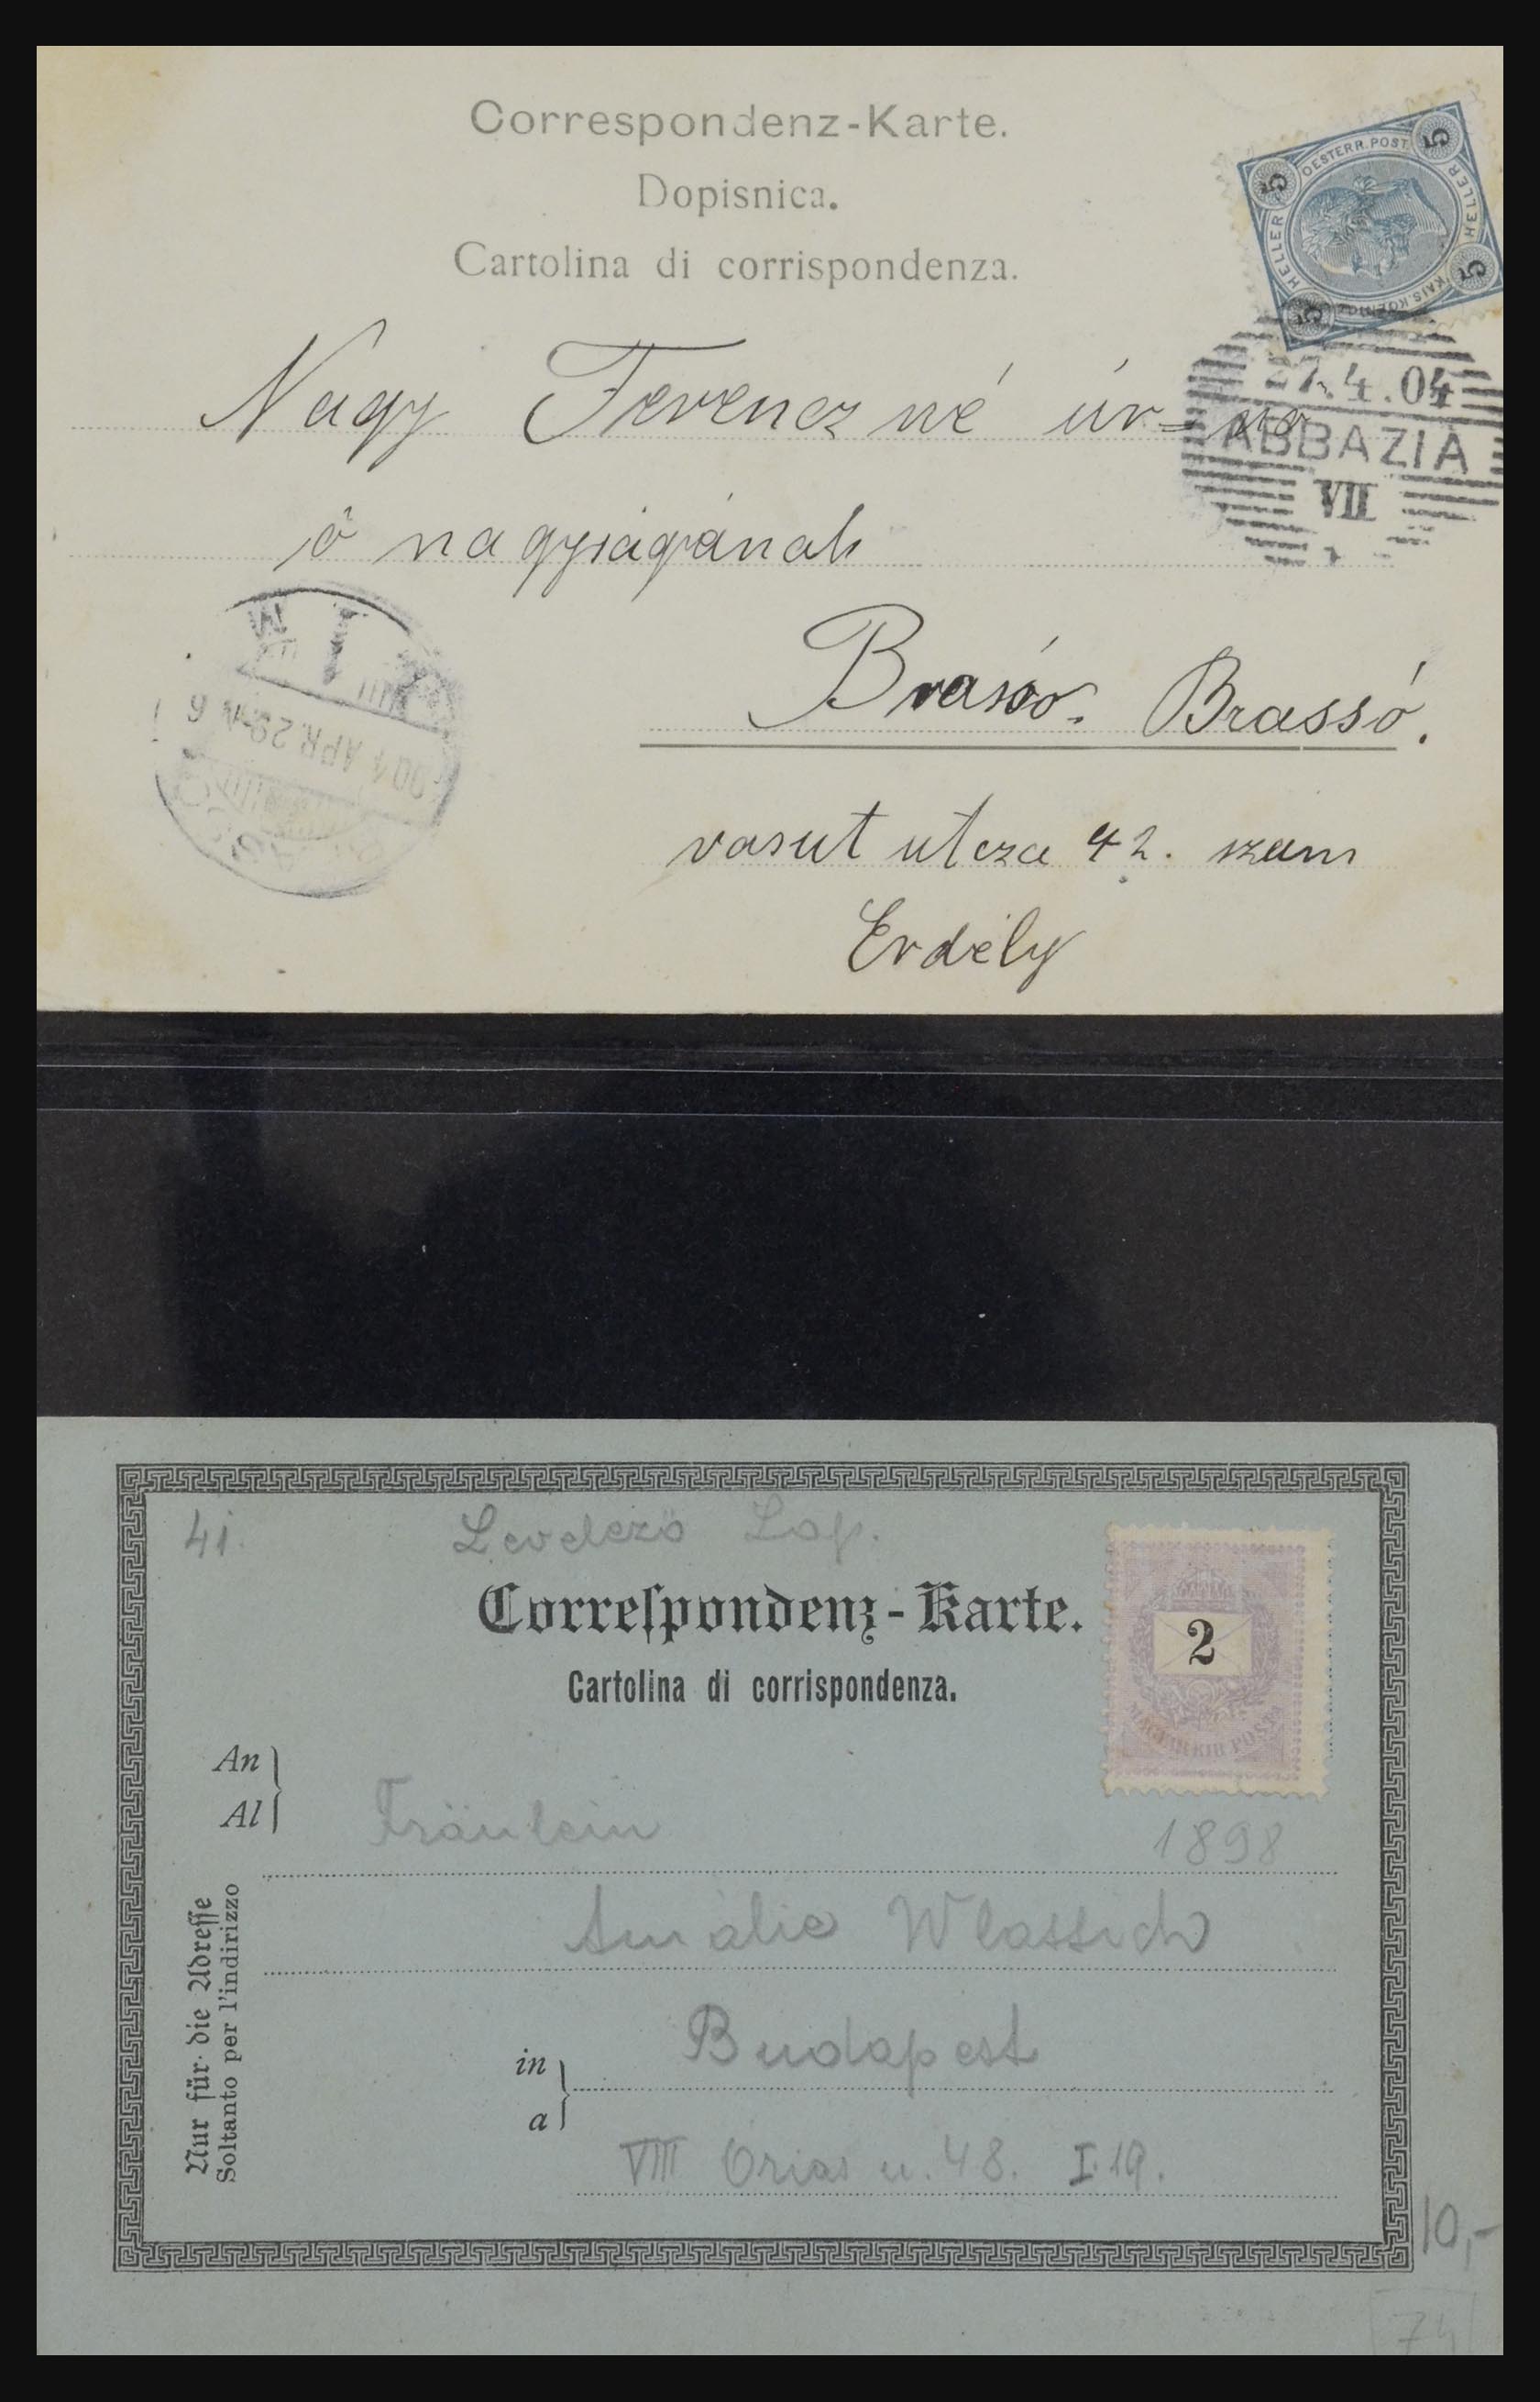 Correspondenz-Karte.
Dopisnica.
Cartolina di corrispondenza.
5 OESTERR. POST. 5
HELLER HELLER
5 KAIS. KOENIGL. 5
27.4.04
ABBAZIA
VII
Nagy Ferencz né úr=nő
ő nagyságának
Brassó. Brassó.
904 APR. 29
vasut utcza 42. szam
Erdély
41.
Levelező Lap.
Correſpondenz-Karte.
Cartolina di corrispondenza.
2
MAGYAR KIR. POSTA
An
Al
Fräulein
1898
Amálie Wlassich
in
a
Budapest
VIII Orias u. 48. I.19.
Nur für die Adreſſe
Soltanto per l'indirizzo
10,-
74